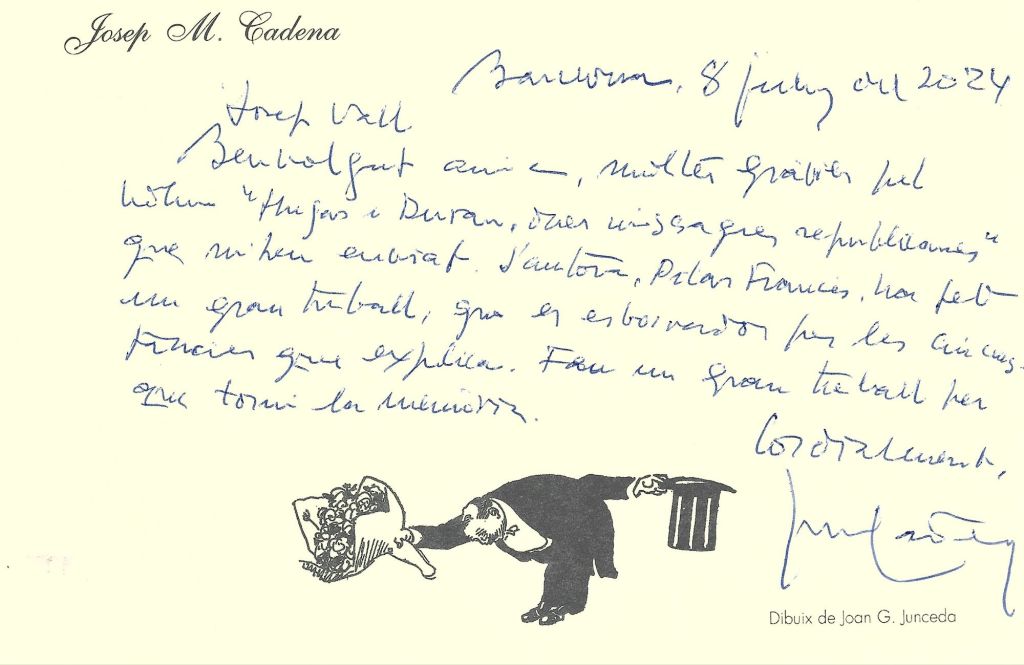 Josep M. Cadena
Barcelona, 8 juny del 2024
Josep Vall
Benvolgut amic, moltes gràcies pel
volum "Thugas i Duran, dues nissagues republicanes"
que m'heu enviat. L'autora, Pilar Francès, ha fet
un gran treball, que es esborronador per les circums-
tàncies que explica. Feu un gran treball per
que torni la memòria.
Cordialment,
Dibuix de Joan G. Junceda